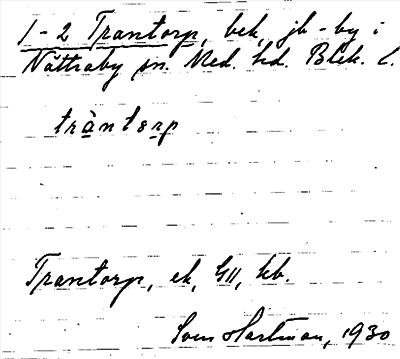 1-2 Trantorp, bek, jb-by i
Nättraby sn. Med. hd. Blek. l.
tràntorp
Trantorp, ek, GII, kb.
Sven Hartman, 1930